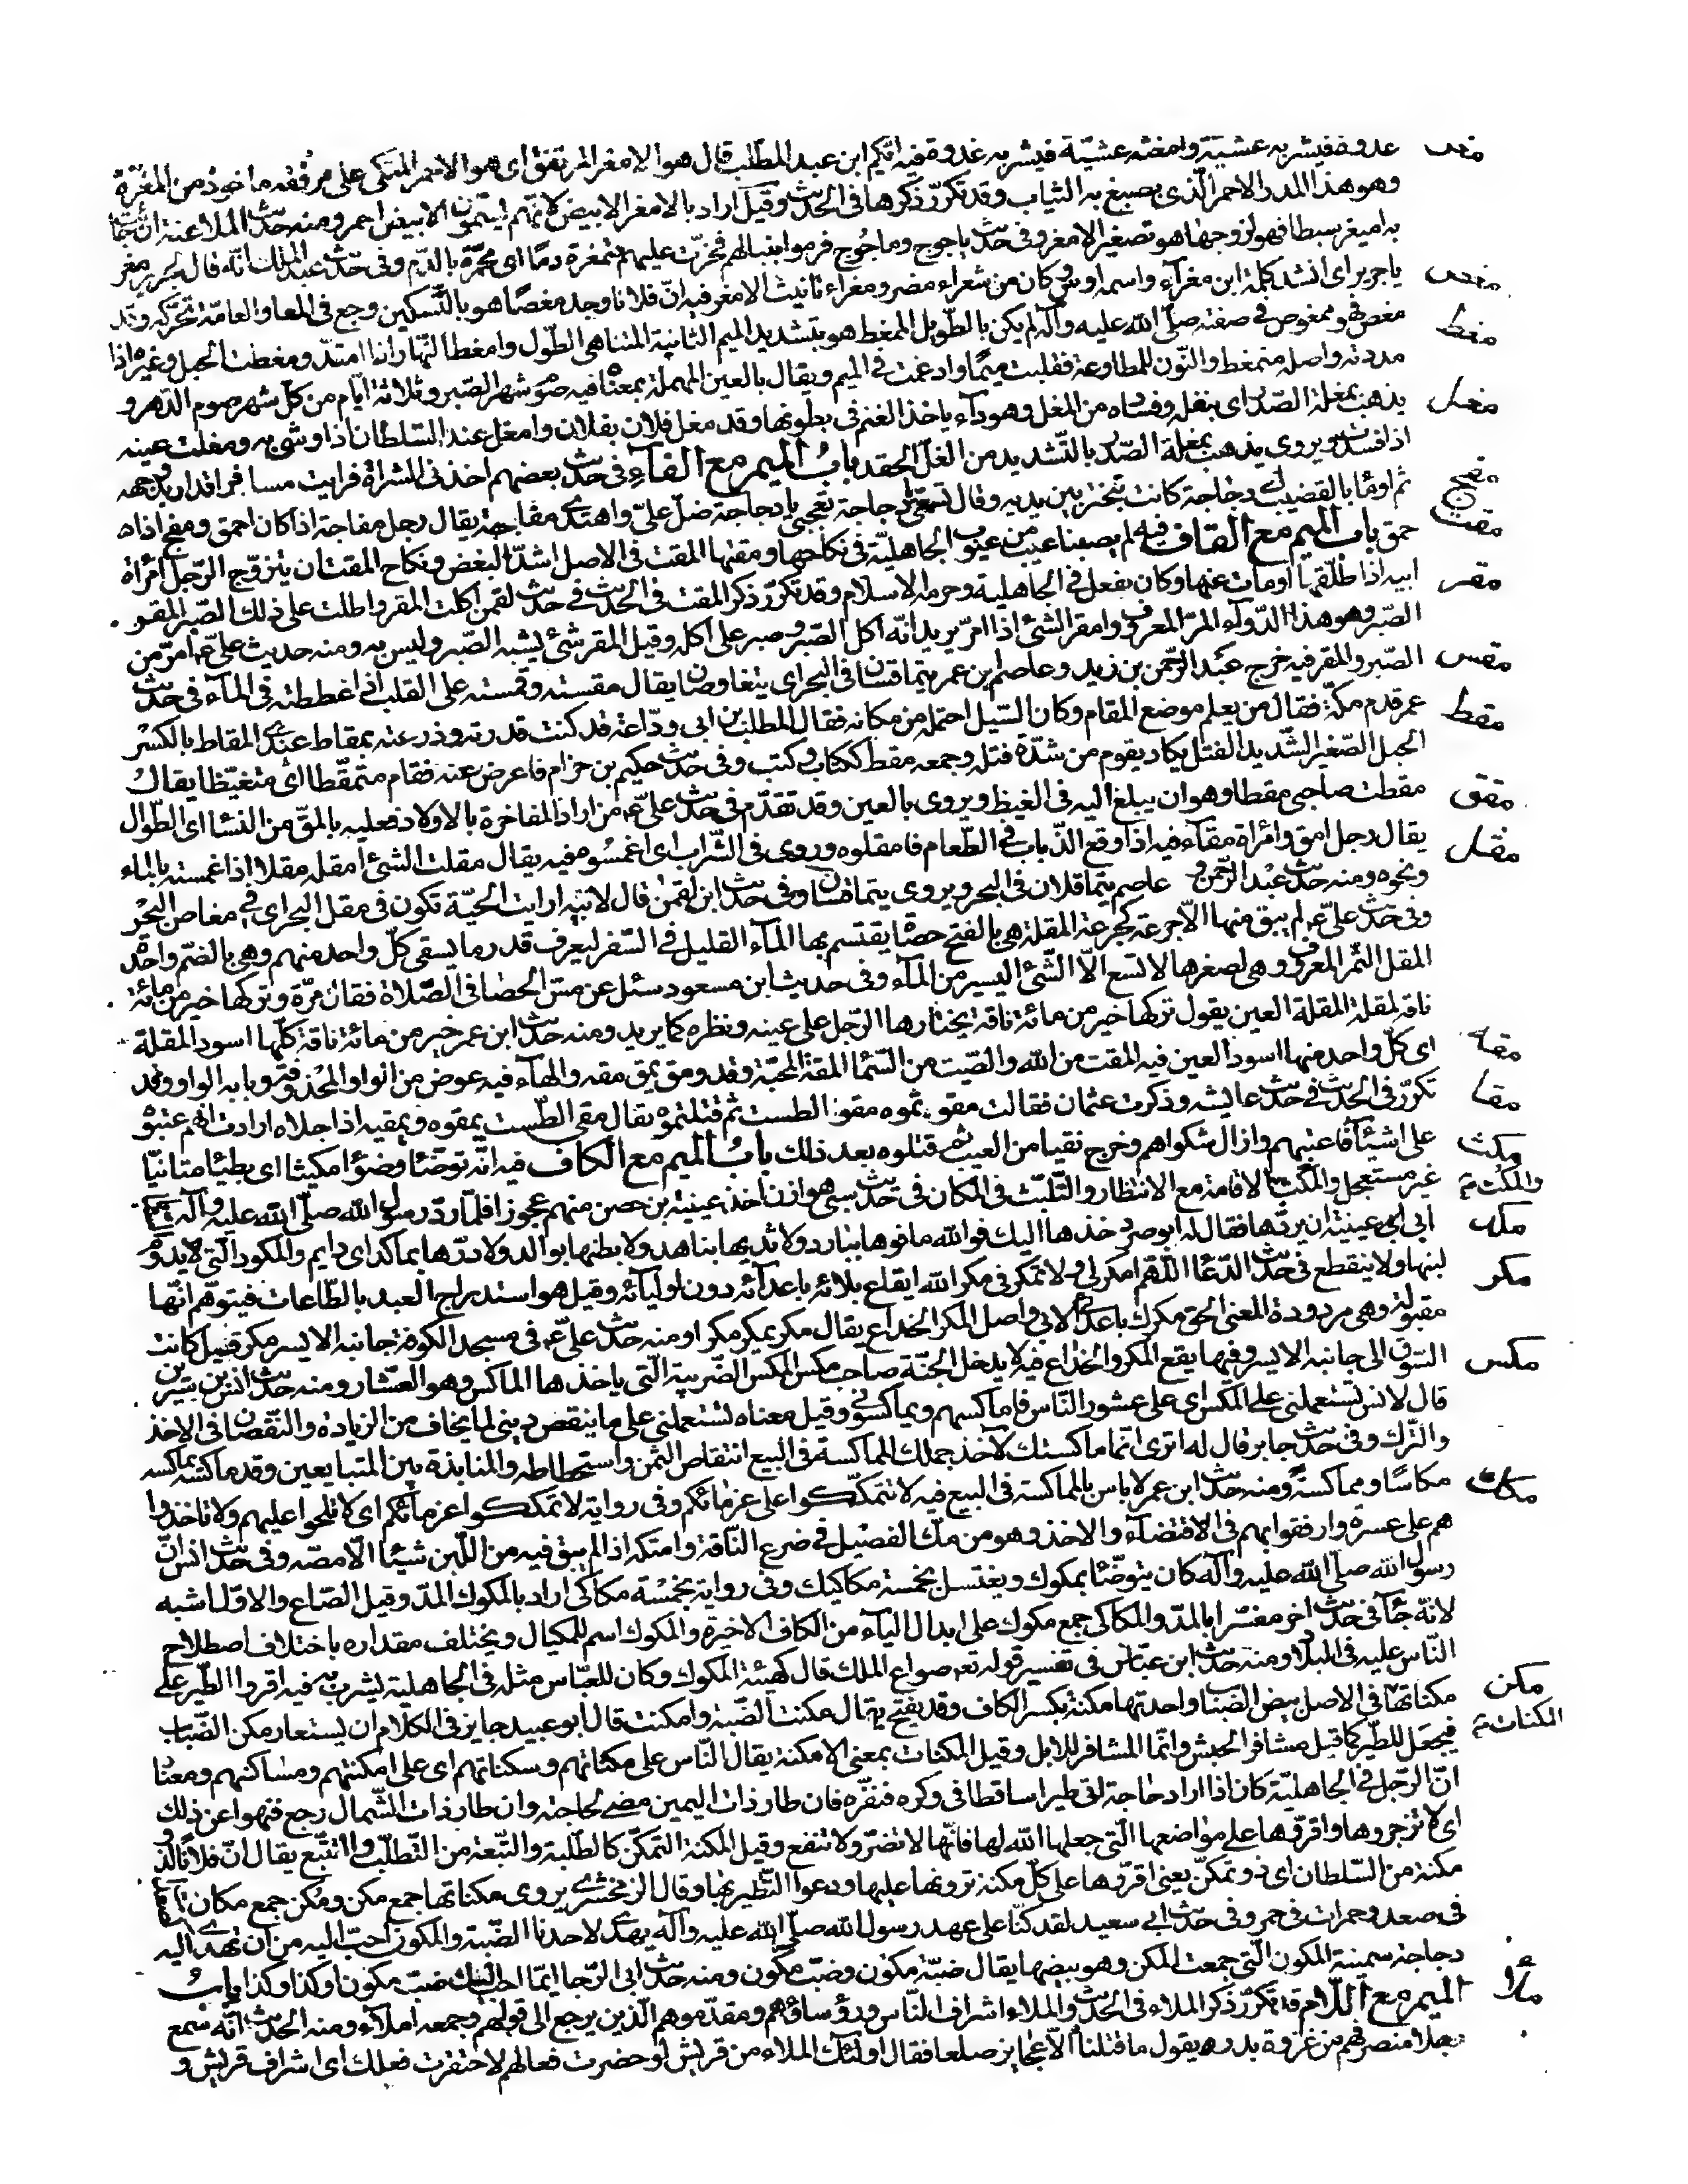 غدوة فيشربه عشية وامغثه عشية فيشربه غدوة فيه ايكم ابن عبد المطلب قال هو الامغر المرتفق اى هو الاحمر المتكى على مرفقه ماخوذ من المغرة
وهو هذا المدر الاحمر الذى يصبغ به الثياب وقد تكرر ذكرها فى الحديث وقيل اراد بالامغر الابيض لانهم يسمون الابيض احمر ومنه حديث الملاعنة ان جائت
به اميغر سبطا فهو لزوجها هو تصغير الامغر وفى حديث ياجوج وماجوج فرموا بنبالهم فخرت عليهم متمغرة دما اى محمرة بالدم وفى حديث عبد الملك انه قال لجرير مغر
ياجرير اى انشد كلمة ابن مغرآء واسمه اوس كان من شعراء مضر ومغراء تانيث الامغر فيه ان فلانا وجد مغصا هو بالتسكين وجع فى المعا والعامة تحركه وقد
مغص فهو ممغوص فى صفته صلى الله عليه وآله لم يكن بالطويل الممغط هو بتشديد الميم الثانية المتناهى الطول وامغط النهار اذا امتد ومغطت الحبل وغيره اذا
مددته واصله منمغط والنون للمطاوعة فقلبت ميما وادغمت فى الميم ويقال بالعين المهملة بمعناه فيه صوم شهر الصبر وثلاثة ايام من كل شهر صوم الدهر و
يذهب بمغلة الصدر اى بنغله وفساده من المغل وهو دآء ياخذ الغنم فى بطونها وقد مغل فلان بفلان وامغل عند السلطان اذا وشى به ومغلت عينه
اذا فسدت ويروى يذهب بمغلة الصدر بالتشديد من الغل الحقد باب الميم مع الفآء فى حديث بعضهم اخذنى الشراة فرايت مساورا قد اربد وجهه
ثم اومأ بالقضيب الى دجاجة كانت تبختر بين يديه وقال تسمعى يا دجاجة تعجبى يا دجاجة ضل على واهتدى مفاجة يقال رجل مفاجة اذا كان احمق ومفج اذا
حمق باب الميم مع القاف فيه لم يصبنا عيب من عيوب الجاهلية فى نكاحها ومقتها المقت فى الاصل اشد البغض ونكاح المقت ان يتزوج الرجل امرأة
ابيه اذا طلقها او مات عنها وكان يفعل فى الجاهلية وحرمه الاسلام وقد تكرر ذكر المقت فى الحديث فى حديث لقمن اكلت المقر واطلت على ذلك الصبر المقر
الصبر وهو هذا الدوآء المر المعروف وامقر الشئ اذا امر يريد انه اكل الصبر وصبر على اكله وقيل المقر شئ يشبه الصبر وليس به ومنه حديث على ع امر من
الصبر والمقر فيه خرج عبد الرحمن بن زيد وعاصم ابن عمر يتماقسان فى البحر اى يتغاوصان يقال مقسته وقمسته على القلب اذا غططته فى المآء فى حديث
عمر قدم مكة فقال من يعلم موضع المقام وكان السيل احتمله من مكانه فقال المطلب بن ابى وداعة قد كنت قدرته وذرعته بمقاط عندى المقاط بالكسر
الحبل الصغير الشديد الفتل يكاد يقوم من شدة فتله وجمعه مقط ككتاب وكتب وفى حديث حكيم بن حزام فاعرض عنه فقام متمقطا اى متغيظا يقال
مقطت صاحبى مقطا وهو ان يبلغ اليه فى الغيظ ويروى بالعين وقد تقدم فى حديث على ع من اراد المفاخرة بالاولاد فعليه بالمق من النسا اى الطوال
يقال رجل امق وامرأة مقآء فيه اذا وقع الذباب فى الطعام فامقلوه وروى فى الشراب اى اغمسوه فيه يقال مقلت الشئ امقله مقلا اذا غمسته بالماء
ونحوه ومنه حديث عبد الرحمن و عاصم يتماقلان فى البحر ويروى يتماقسان وفى حديث ابن لقمن قال لابيه ارايت الحبة تكون فى مقل البحر اى فى مغاص البحر
وفى حديث على ع لم يبق منها الا جرعة كجرعة المقلة هى بالفتح حصاة يقتسم بها المآء القليل فى السفر ليعرف قدر ما يسقى كل واحد منهم وهى بالضم واحدة
المقل الثمر المعروف وهى لصغرها لا تسع الا الشئ اليسير من المآء وفى حديث ابن مسعود سئل عن مس الحصا فى الصلاة فقال مرة وتركها خير من مائة
ناقة لمقلة المقلة العين يقول تركها خير من مائة ناقة يختارها الرجل على عينه ونظره كما يريد ومنه حديث ابن عمر خير من مائة ناقة كلها اسود المقلة
اى كل واحد منها اسود العين فيه المقت من الله والصيت من السما المقة المحبة وقد ومق يمق مقه والهآء فيه عوض من الواو المحذوفة وبابه الواو وقد
تكرر فى الحديث فى حديث عايشه وذكرت عثمان فقالت مقوتموه مقو الطست ثم قتلتموه يقال مقى الطست يمقوه ويمقيه اذا جلاه ارادت انهم عتبوه
على اشيآء فاعتبهم وازال شكواهم وخرج نقيا من العيب ثم قتلوه بعد ذلك باب الميم مع الكاف فيه انه توضأ وضوءا مكيثا اى بطيئا متانيا
غير مستعجل والمكث الاقامة مع الانتظار والتلبث فى المكان فى حديث سبى هوازن اخذ عيينة بن حصن منهم عجوزا فلما رد رسول الله صلى الله عليه وآله السبايا
ابى عيينة ان يردها فقال له ابو صرد خذها اليك فوالله ما فوها ببارد ولا ثديها بناهد ولا بطنها بوالد ولا درها بماكد اى دايم والمكود التى لا يدوم
لبنها ولا ينقطع فى حديث الدعا اللهم امكر لى ولا تمكر بى مكر الله ايقاع بلائه باعدآئه دون اوليآئه وقيل هو استدراج العبد بالطاعات فيتوهم انها
مقبولة وهى مردودة المعنى الحق مكرك باعدآئى لا بى واصل المكر الخداع يقال مكر يمكر مكرا ومنه حديث على ع فى مسجد الكوفة جانبه الايسر مكر قيل كانت
السوق الى جانبه الايسر وفيها يقع المكر والخداع فيه لا يدخل الجنة صاحب مكس المكس الضريبة التى ياخذها الماكس وهو العشار ومنه حديث انس بن سيرين
قال لانس تستعملنى على المكس اى على عشور الناس فاماكسهم ويماكسونى وقيل معناه تستعملنى على ما ينقص دينى لما يخاف من الزيادة والنقصان فى الاخذ
والترك وفى حديث جابر قال له اترى انما ماكستك لآخذ جملك المماكسة فى البيع انتقاص الثمن واستحطاطه والمنابذة بين المتبايعين وقد ماكسه يماكسه
مكاسا ومماكسة ومنه حديث ابن عمر لا باس بالمماكسة فى البيع فيه لا تتمككوا على غرمائكم وفى رواية لا تمككوا غرمآئكم اى لا تلحوا عليهم ولا تاخذوا
هم على عسرة وارفقوا بهم فى الاقتضآء والاخذ وهو من مك الفصيل فى ضرع الناقة وامتكه اذا لم يبق فيه من اللبن شيئا الا مصه وفى حديث انس ان
رسول الله صلى الله عليه وآله كان يتوضأ بمكوك ويغتسل بخمسة مكاكيك وفى رواية بخمسة مكاكى اراد بالمكوك المد وقيل الصاع والاول اشبه
لانه جآء فى حديث اخر مفسرا بالمد والمكاكى جمع مكوك على ابدال اليآء من الكاف الاخيرة والمكوك اسم للمكيال ويختلف مقداره باختلاف اصطلاح
الناس عليه فى البلاد ومنه حديث ابن عباس فى تفسير قوله تع صواع الملك قال كهيئة المكوك وكان للعباس مثله فى الجاهلية يشرب به فيه اقروا الطير على
مكناتها فى الاصل بيض الضباب واحدتها مكنة بكسر الكاف وقد يفتح يقال مكنت الضبة وامكنت قال ابو عبيد جايز فى الكلام ان يستعار مكن الضباب
فيجعل للطير كما قيل مشافر الحبش وانما المشافر للابل وقيل المكنات بمعنى الامكنة يقال الناس على مكناتهم وسكناتهم اى على امكنتهم ومساكنهم ومعناه
ان الرجل فى الجاهلية كان اذا اراد حاجة اتى طيرا ساقطا فى وكره فنفره فان طار ذات اليمين مضى لحاجته وان طار ذات الشمال رجع فنهوا عن ذلك
اى لا تزجروها واقروها على مواضعها التى جعلها الله لها فانها لا تضر ولا تنفع وقيل المكنة التمكن كالطلبة والتبعة من التطلب والتتبع يقال ان فلانا لذو
مكنة من السلطان اى ذو تمكن يعنى اقروها على كل مكنة ترونها عليها ودعوا التطير بها وقال الزمخشرى يروى مكناتها جمع مكن ومكن جمع مكان
فى صعد وحمرات فى حمر وفى حديث ابى سعيد لقد كنا على عهد رسول الله صلى الله عليه وآله يهدى لاحدنا الضبة والمكون احب اليه من ان يهدى اليه
دجاجة سمينة المكون التى جمعت المكن وهو بيضها يقال ضبة مكون وضب مكون ومنه حديث ابى الرجا ايما احب اليك ضب مكون او كذا وكذا باب
الميم مع اللام قد تكرر ذكر الملاء فى الحديث والملاء اشراف الناس ورؤساؤهم ومقدموهم الذين يرجع الى قولهم وجمعه املآء ومنه الحديث انه سمع
رجلا منصرفهم من غزوة بدر يقول ما قتلنا الا عجايز صلعا فقال اولئك الملاء من قريش لو حضرت فعالهم لاحتقرت فعلك اى اشراف قريش و
مغر
مغص
مغط
مغل
مفج
مقت
مقر
مقس
مقط
مقق
مقل
مقة
مقا
مكث
والمكث
مكد
مكر
مكس
مكك
مكن
المكنات
ملأ